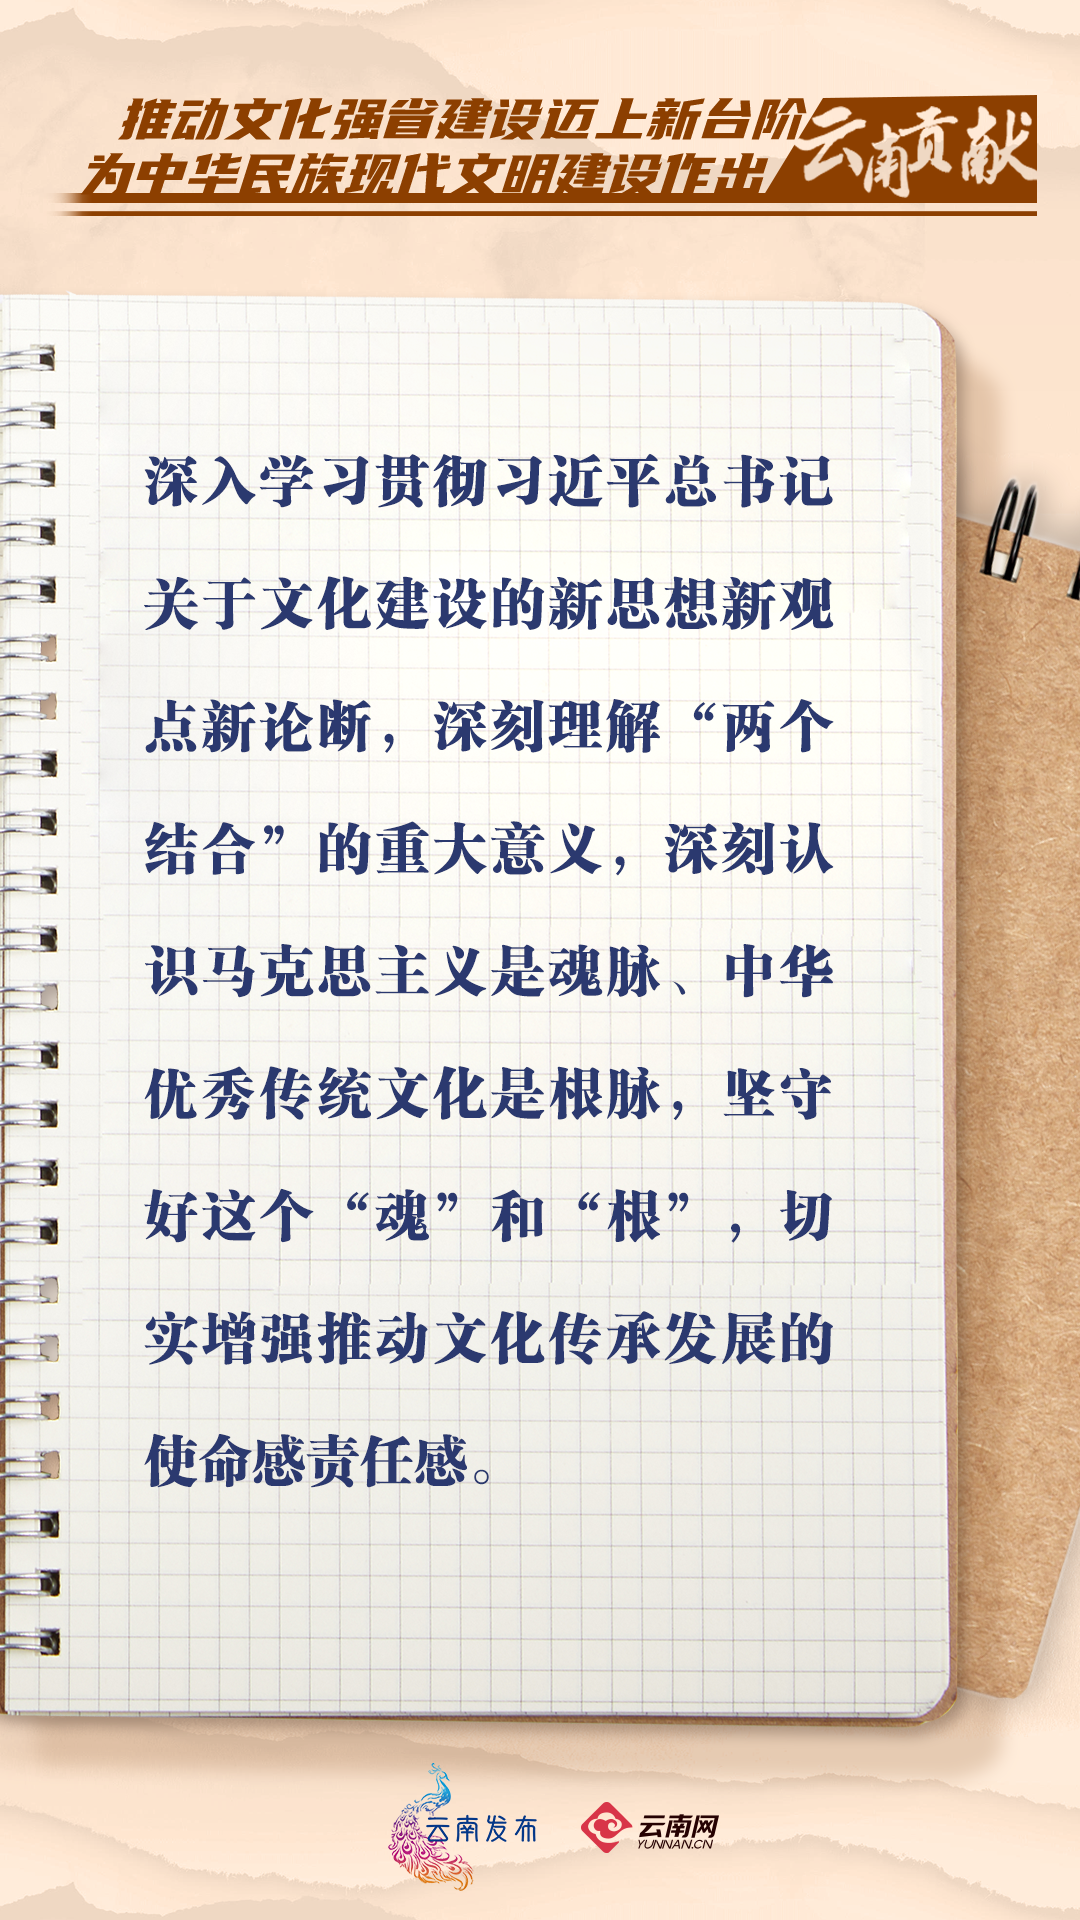 推动文化强省建设迈上新台阶
为中华民族现代文明建设作出
云南贡献
深入学习贯彻习近平总书记
关于文化建设的新思想新观
点新论断，深刻理解“两个
结合”的重大意义，深刻认
识马克思主义是魂脉、中华
优秀传统文化是根脉，坚守
好这个“魂”和“根”，切
实增强推动文化传承发展的
使命感责任感。
云南发布
云南网
YUNNAN.CN